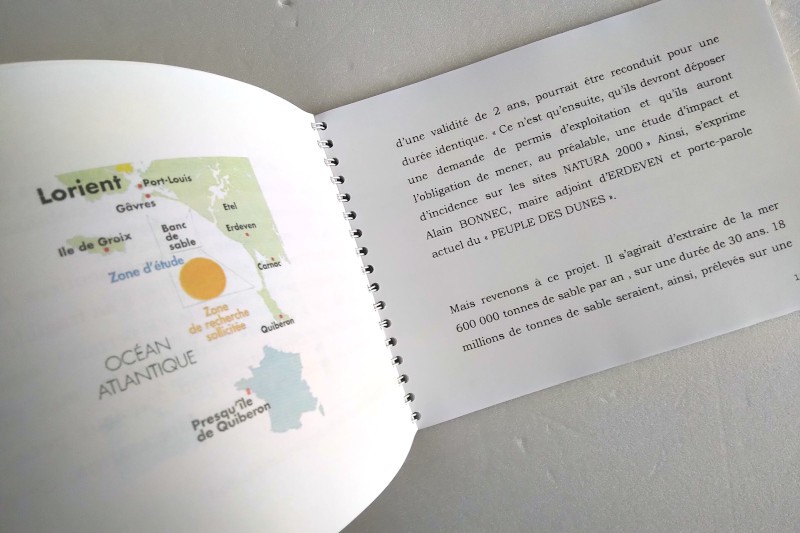 Lorient
Port-Louis
Gâvres
Etel
Erdeven
Banc
de
sable
Ile de Groix
Zone d'étude
Carnac
Zone
de recherche
sollicitée
Quiberon
OCÉAN
ATLANTIQUE
Presqu'île
de Quiberon
d'une validité de 2 ans, pourrait être reconduit pour une
durée identique. « Ce n'est qu'ensuite, qu'ils devront déposer
une demande de permis d'exploitation et qu'ils auront
l'obligation de mener, au préalable, une étude d'impact et
d'incidence sur les sites NATURA 2000 » Ainsi, s'exprime
Alain BONNEC, maire adjoint d'ERDEVEN et porte-parole
actuel du « PEUPLE DES DUNES ».
Mais revenons à ce projet. Il s'agirait d'extraire de la mer
600 000 tonnes de sable par an , sur une durée de 30 ans. 18
millions de tonnes de sable seraient, ainsi, prélevés sur une